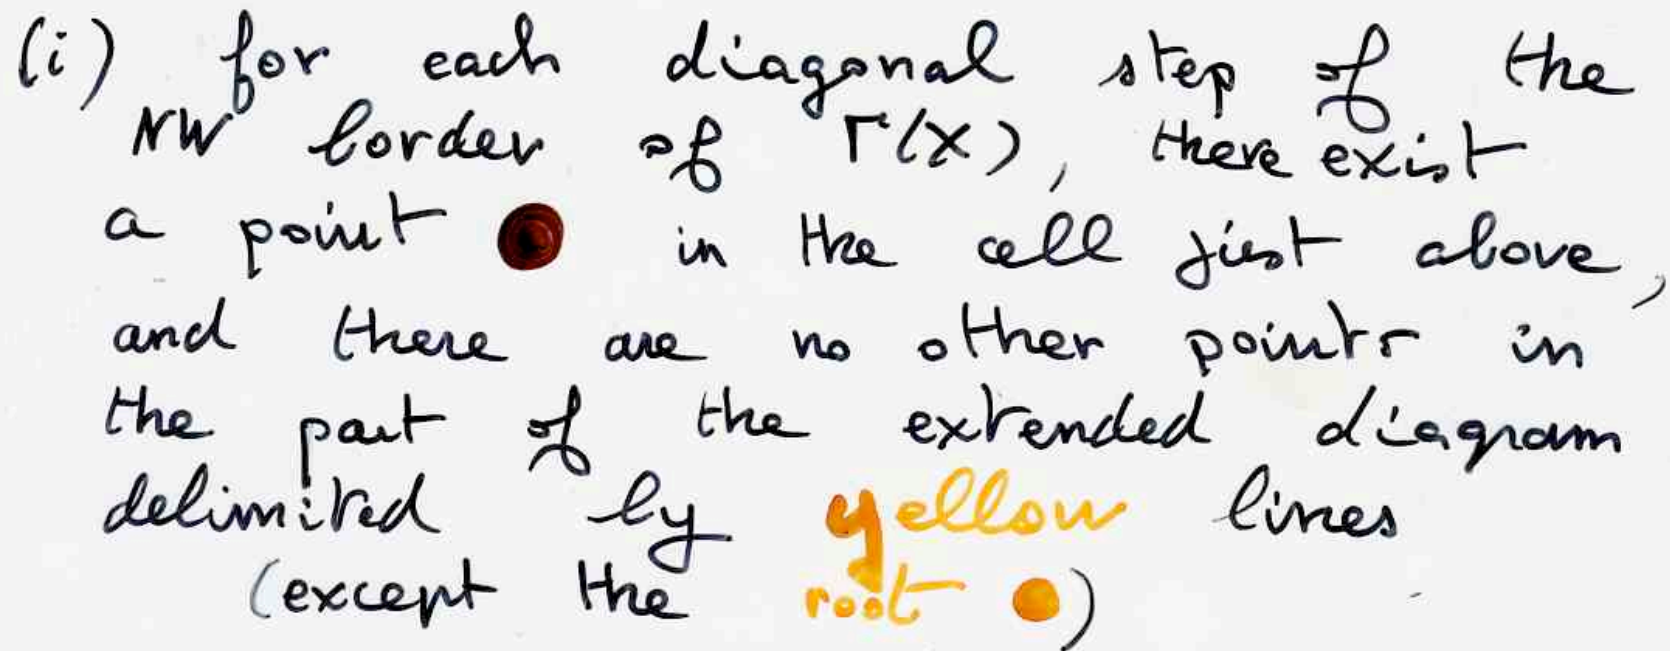 (i) for each diagonal step of the
NW border of Γ(X), there exist
a point ● in the cell just above,
and there are no other points in
the part of the extended diagram
delimited by yellow lines
(except the root ●)